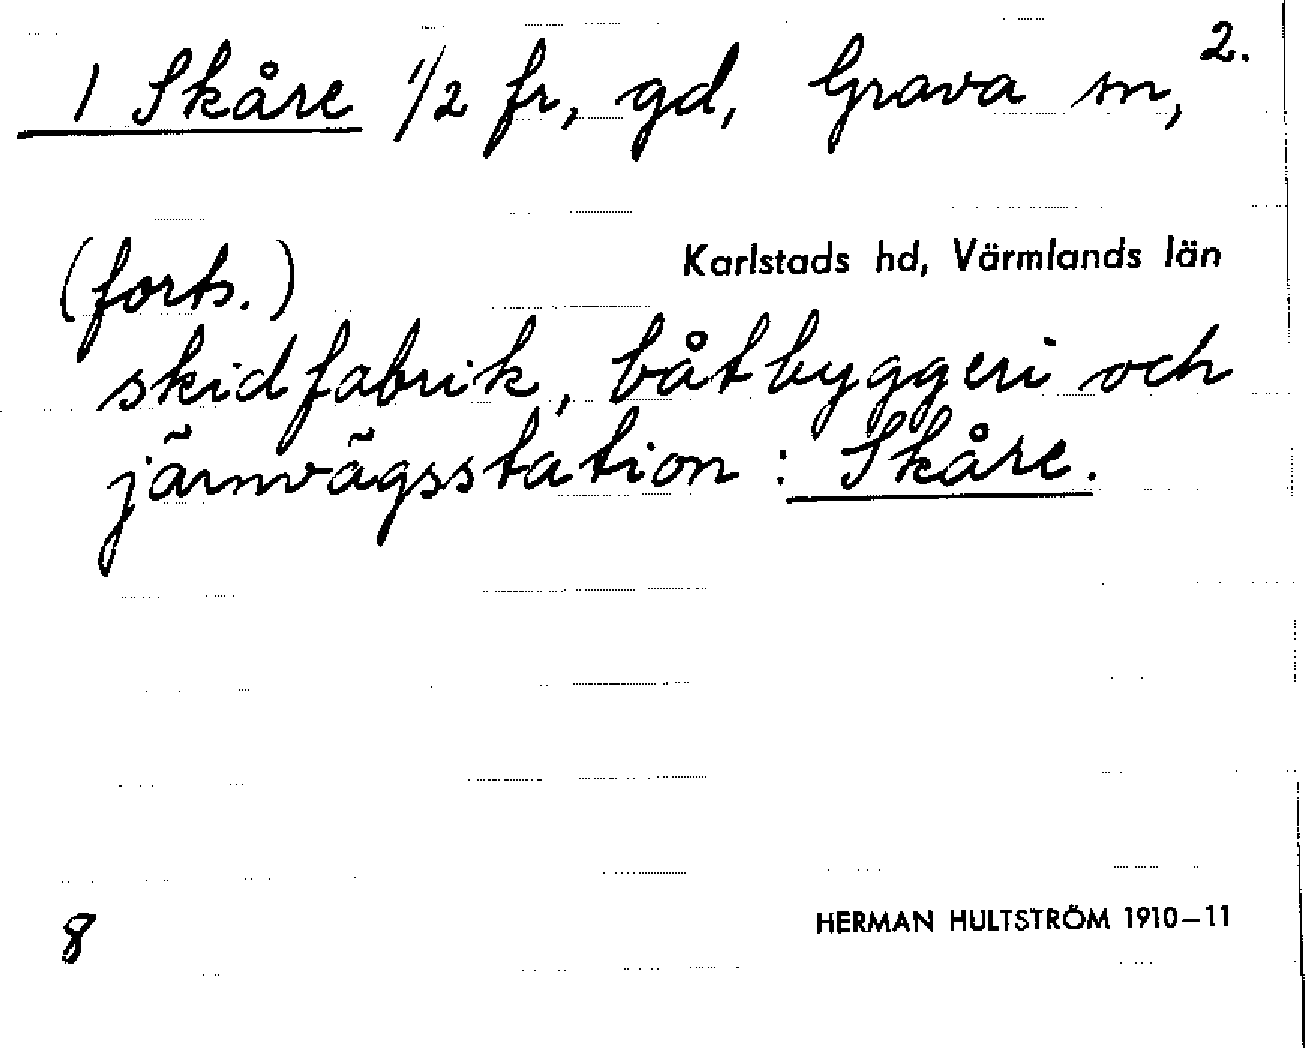 2.
1 Skåre 1/2 fr, gd, Grava sn,
Karlstads hd, Värmlands län
(forts.)
skidfabrik, båtbyggeri och
järnvägsstation: Skåre.
8
HERMAN HULTSTRÖM 1910-11